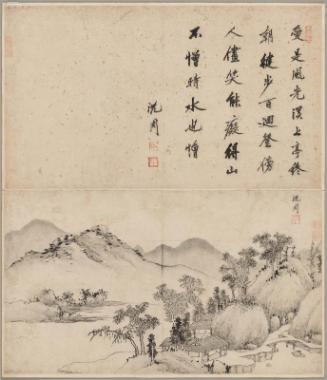 愛是風光溪上亭終
朝徒步百迴登傍
人儘笑能癡得山
不憎時水也憎
沈周
沈周